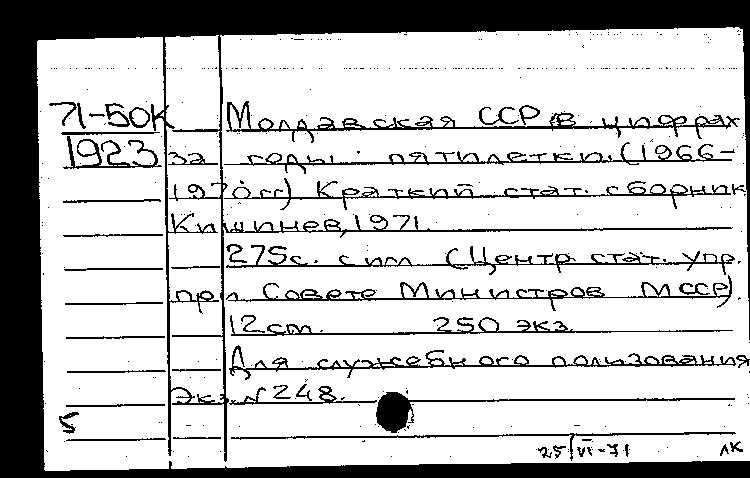 71-50К Молдавская ССР в цифрах
1923 за годы пятилетки. (1966-
1970гг) Краткий стат. сборник
Кишинев, 1971.
275с. с ил (Центр стат. упр.
при Совете Министров МССР).
12см. 250 экз.
Для служебного пользования
Экз. N 248.
5
25/VI-71 ЛК